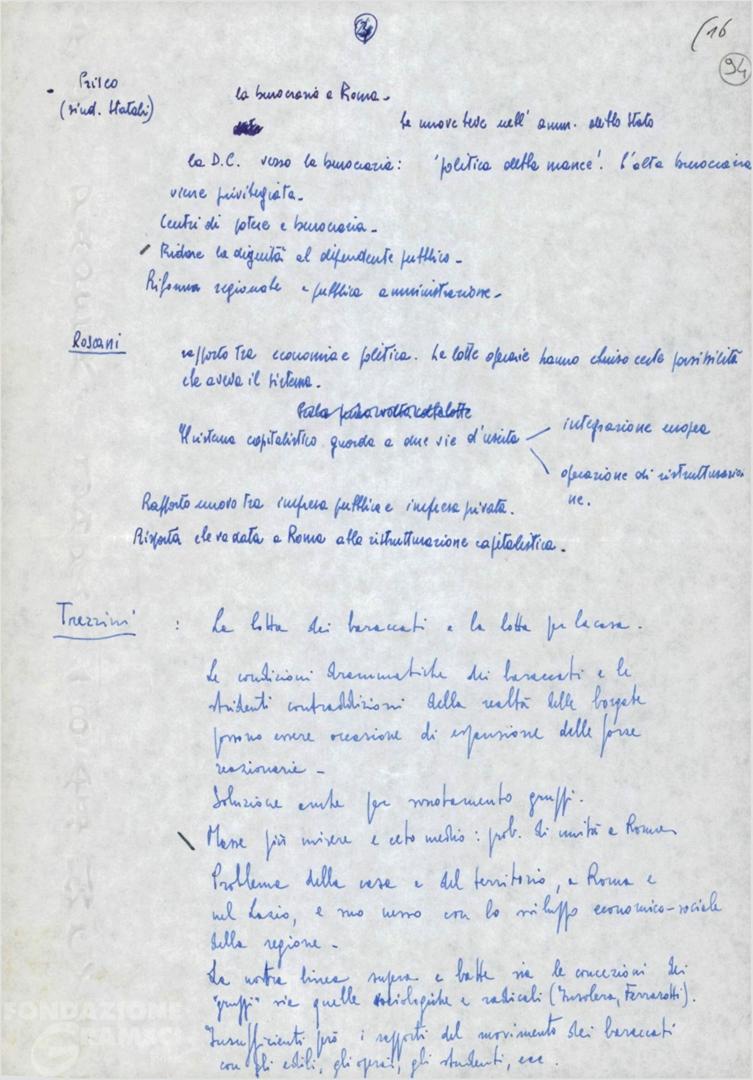 2
(16
94
Prisco
(sind. Statali)
la burocrazia e Roma.
Le nuove leve nell' amm. dello Stato
la D.C. verso la burocrazia: 'politica delle mance'. l'alta burocrazia
viene privilegiata.
Centri di potere e burocrazia.
Ridare la dignità al dipendente pubblico.
Riforma regionale e pubblica amministrazione.
Roscani
rapporto tra economia e politica. Le lotte operaie hanno chiuso certe possibilità
che aveva il sistema.
Il sistema capitalistico guarda a due vie d'uscita
integrazione europea
operazione di ristrutturazio
ne.
Rapporto nuovo tra impresa pubblica e impresa privata.
Risposta che va data a Roma alla ristrutturazione capitalistica.
Trezzini :
La lotta dei baraccati e la lotta per la casa.
Le condizioni drammatiche dei baraccati e le
stridenti contraddizioni della realtà delle borgate
possono essere occasione di espansione delle forze
reazionarie -
Soluzione anche per svuotamento gruppi.
Masse più misere e ceto medio: prob. di unità a Roma
Problema della casa e del territorio, a Roma e
nel Lazio, e suo nesso con lo sviluppo economico-sociale
della regione -
La nostra linea supera e batte sia le concezioni dei
"gruppi" sia quelle sociologiche e radicali (Insolera, Ferrarotti).
Insufficienti però i rapporti del movimento dei baraccati
con gli edili, gli operai, gli studenti, ecc.
FONDAZIONE
GRAMSCI